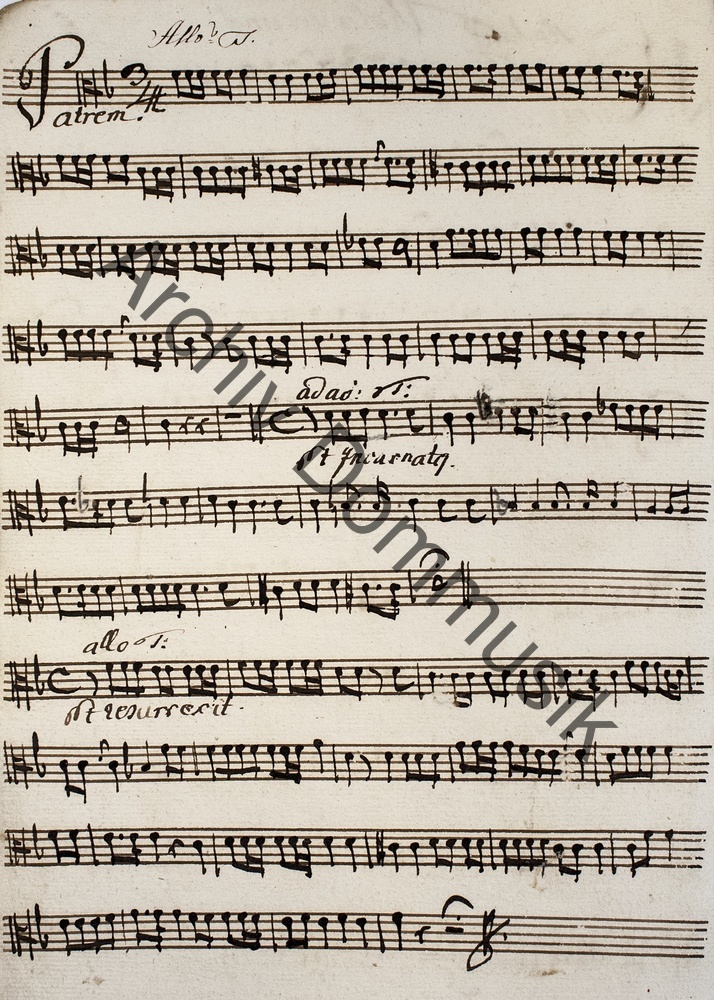 Allo: T.
Patrem.
3/4
adag: T:
Et Incarnatq.
allo T:
Et resurrexit.
Archiv Dommusik